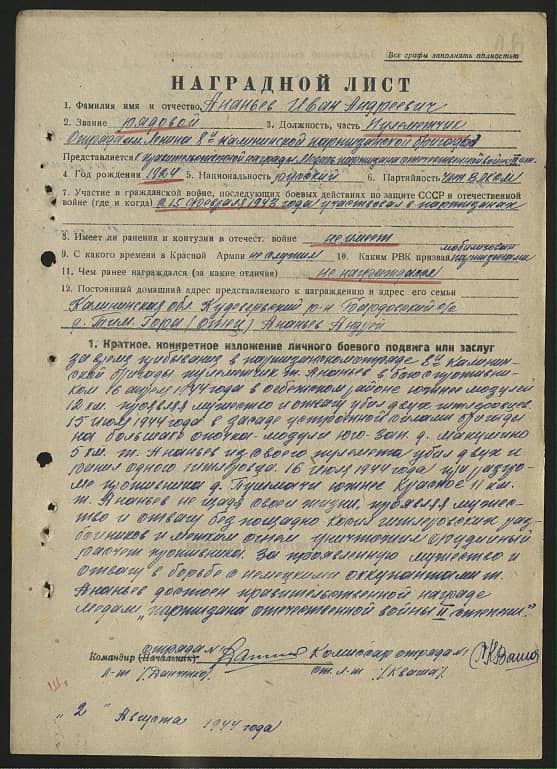 Все графы заполнять полностью
НАГРАДНОЙ ЛИСТ
1. Фамилия имя и отчество Ананьев Иван Андреевич
2. Звание рядовой 3. Должность, часть пулеметчик
Отряда им. Ленина 8й Калининской партизанской бригады
Представляется к правительственной награде Медаль партизана отечественной войны II ст.
4. Год рождения 1924 5. Национальность русский 6. Партийность чл. ВЛКСМ
7. Участие в гражданской войне, последующих боевых действиях по защите СССР и отечественной
войне (где и когда) с 15 февраля 1943 года участвовал в партизанах
8. Имеет ли ранения и контузии в отечест. войне не имеет
9. С какого времени в Красной Армии не служил 10. Каким РВК призван мобилизован партизанами
11. Чем ранее награждался (за какие отличия) не награждался
12. Постоянный домашний адрес представляемого к награждению и адрес его семьи
Калининская обл. р-н Бардовский с/с
д. Тим. Гора (отец) Ананьев Андрей
1. Краткое, конкретное изложение личного боевого подвига или заслуг
за время пребывания в партизанском отряде 8й Калинин-
ской бригады пулеметчик т. Ананьев в бою с противни-
ком 16 апреля 1944 года в Себежском районе южнее Мозули
12 км. проявляя мужество и отвагу убил двух гитлеровцев.
15 июля 1944 года в засаде устроенной силами бригады
на большаке Опочка-Мозули юго-зап. д. Макушино
5 км. т. Ананьев из своего пулемета убил двух и
ранил одного гитлеровца. 16 июля 1944 года при разгро-
ме противника д. южнее Красное 11 км.
т. Ананьев не щадя своей жизни, проявляя мужест-
во и отвагу беспощадно косил гитлеровских раз-
бойников и метким огнем уничтожил орудийный
расчет противника. За проявленную мужество и
отвагу в борьбе с немецкими оккупантами т.
Ананьев достоен правительственной награде
медали "партизана отечественной войны II степени".
отряда: Комиссар отряда:
Командир (Начальник)
л-т ст. л-т /Кваша/
"2" Августа 1944 года